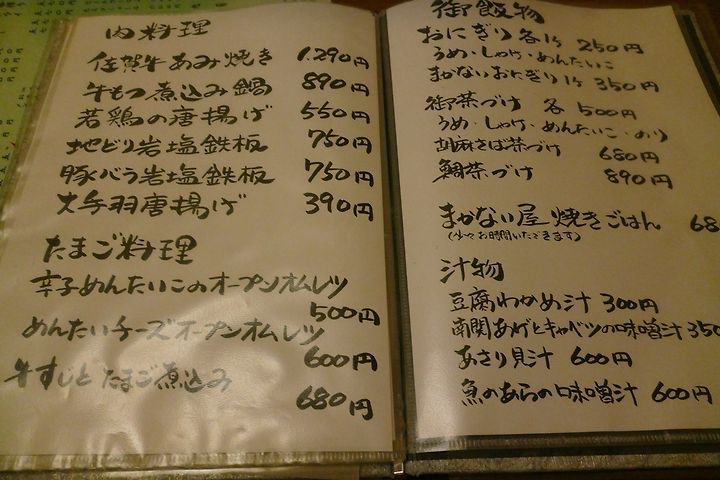 肉料理
佐賀牛あみ焼き 1,290円
牛もつ煮込み鍋 890円
若鶏の唐揚げ 550円
地どり岩塩鉄板 750円
豚バラ岩塩鉄板 750円
大手羽唐揚げ 390円
たまご料理
辛子めんたいこのオープンオムレツ
500円
めんたいチーズオープンオムレツ
600円
牛すじとたまご煮込み
680円
御飯物
おにぎり各1ケ 250円
うめ・しゃけ・めんたいこ
まかないおにぎり1ケ 350円
御茶づけ 各 500円
うめ・しゃけ・めんたいこ・のり
胡麻さば茶づけ 680円
鯛茶づけ 890円
まかない屋焼きごはん 68
(少々お時間いただきます)
汁物
豆腐わかめ汁 300円
南関あげとキャベツの味噌汁 350
あさり貝汁 600円
魚のあらの味噌汁 600円